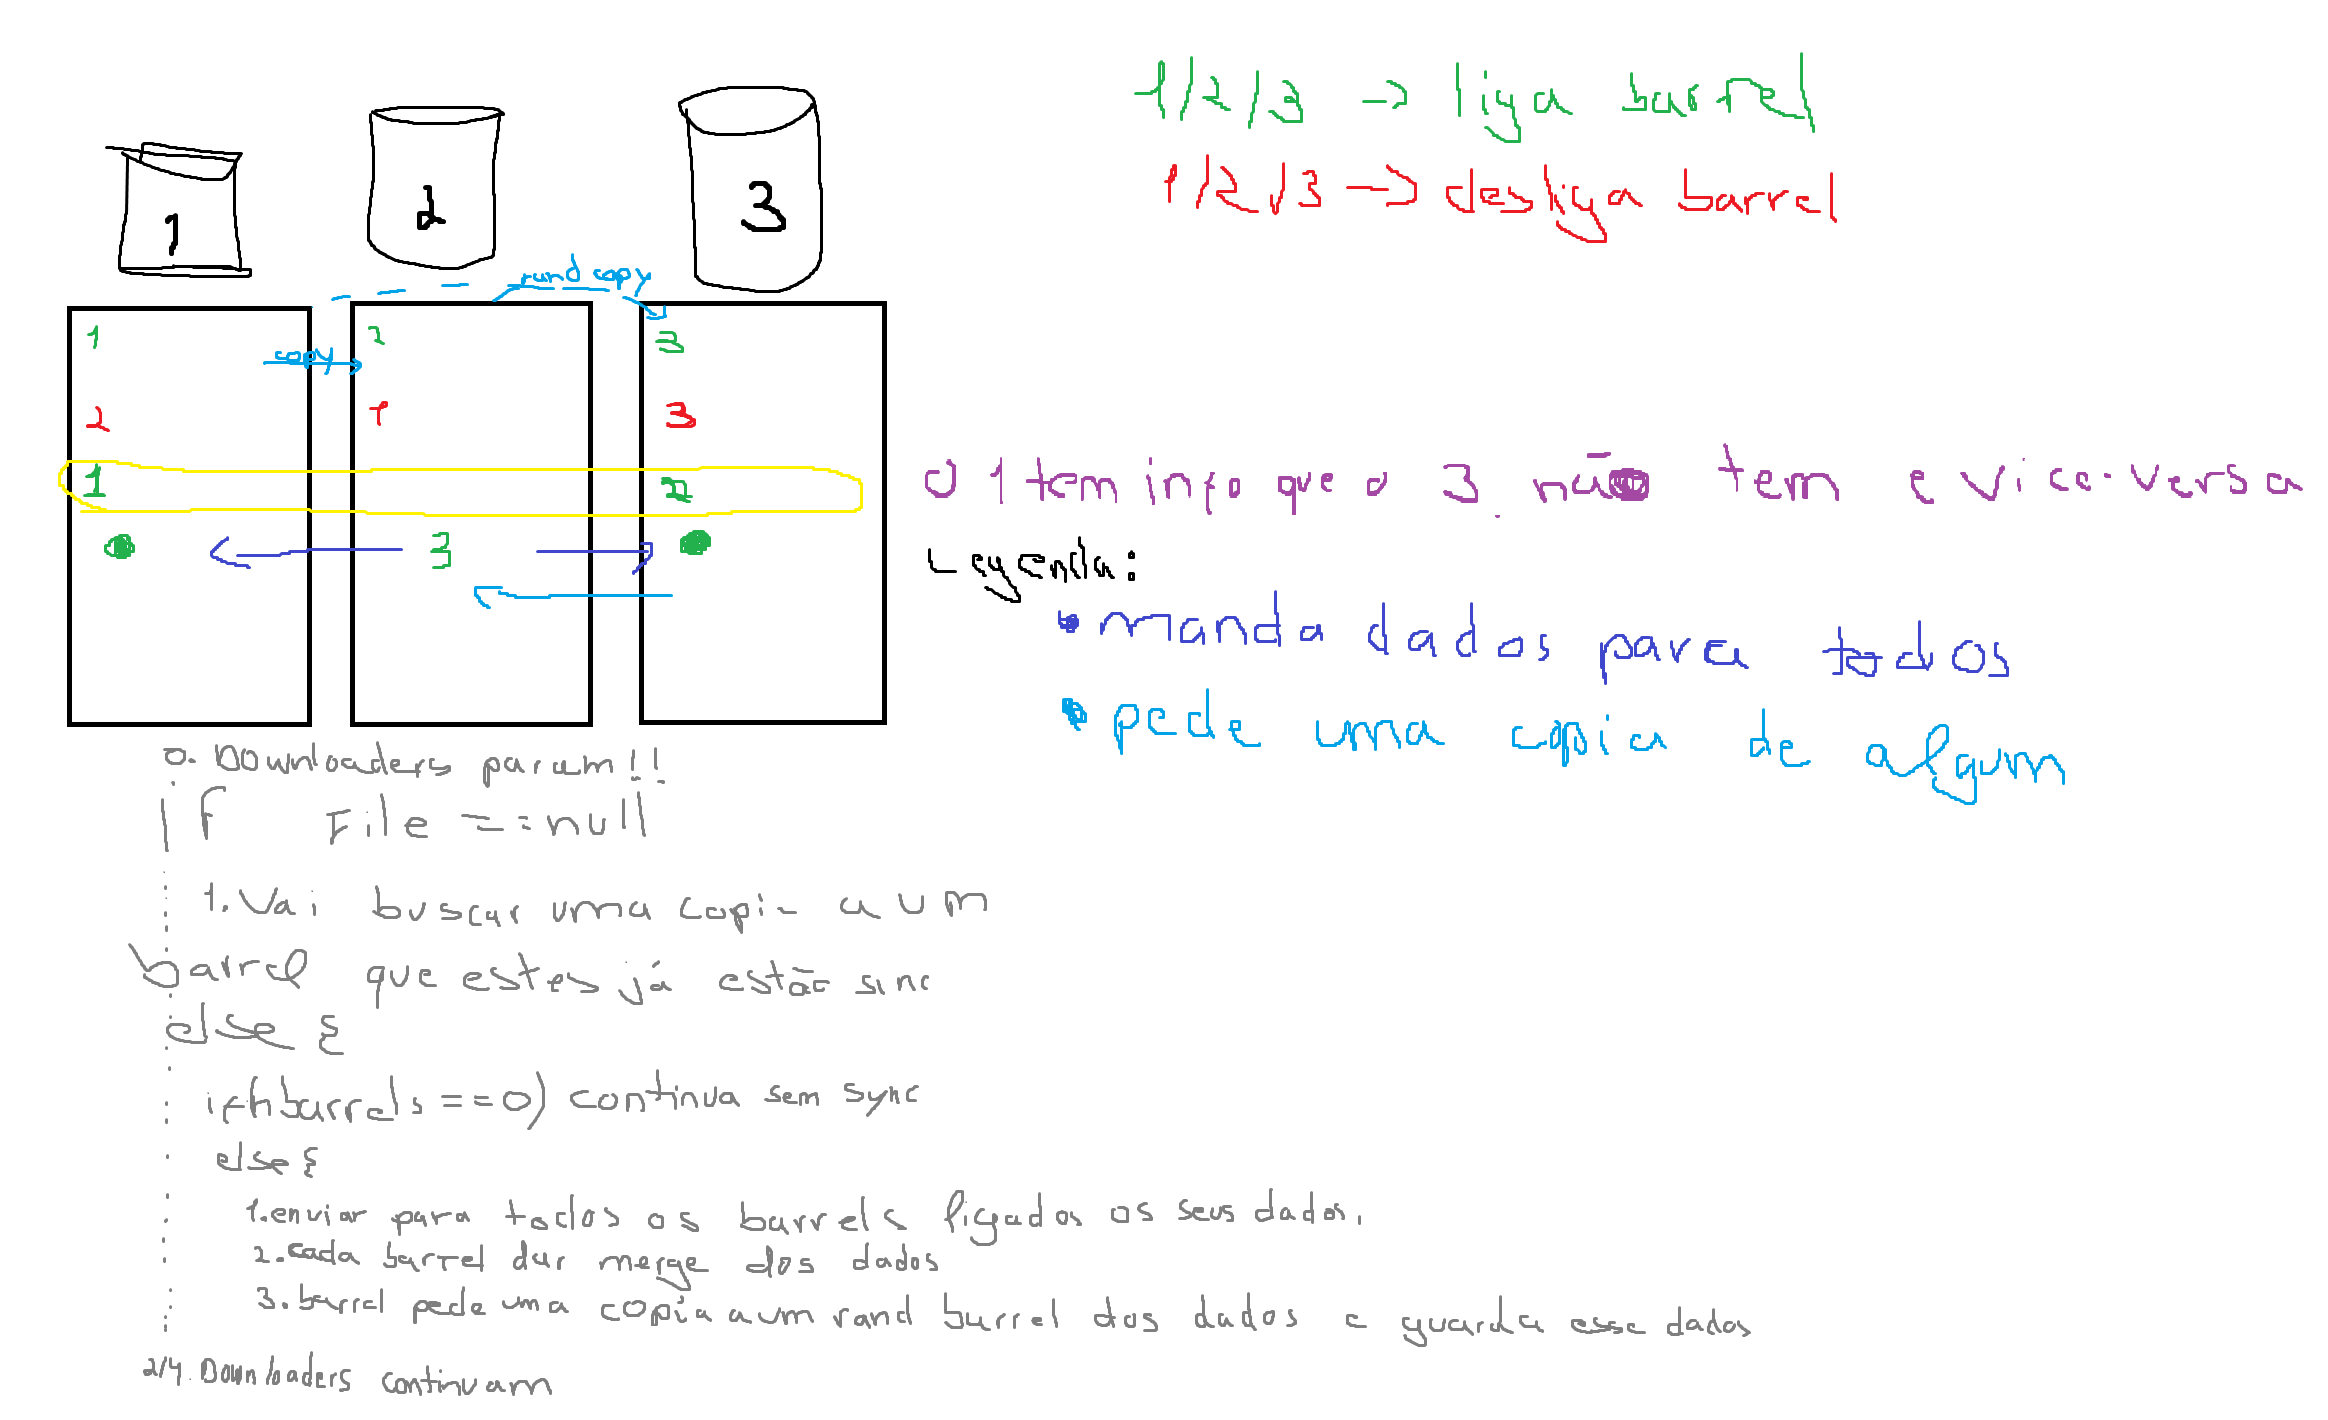 1/2/3 -> liga barrel
1/2/3 -> desliga barrel
1
2
3
rand copy
1
2
3
copy
2
1
3
1
2
O 1 tem info que o 3 não tem e vice-versa
3
Legenda:
• manda dados para todos
• pede uma copia de algum
0. Downloaders param!!
if File == null
1. Vai buscar uma copia a um
barrel que estes já estão sinc
else {
if(nbarrels == 0) continua sem sync
else {
1. enviar para todos os barrels ligados os seus dados.
2. cada barrel dar merge dos dados
3. barrel pede uma copia a um rand barrel dos dados e guarda esse dados
2/4. Downloaders continuam